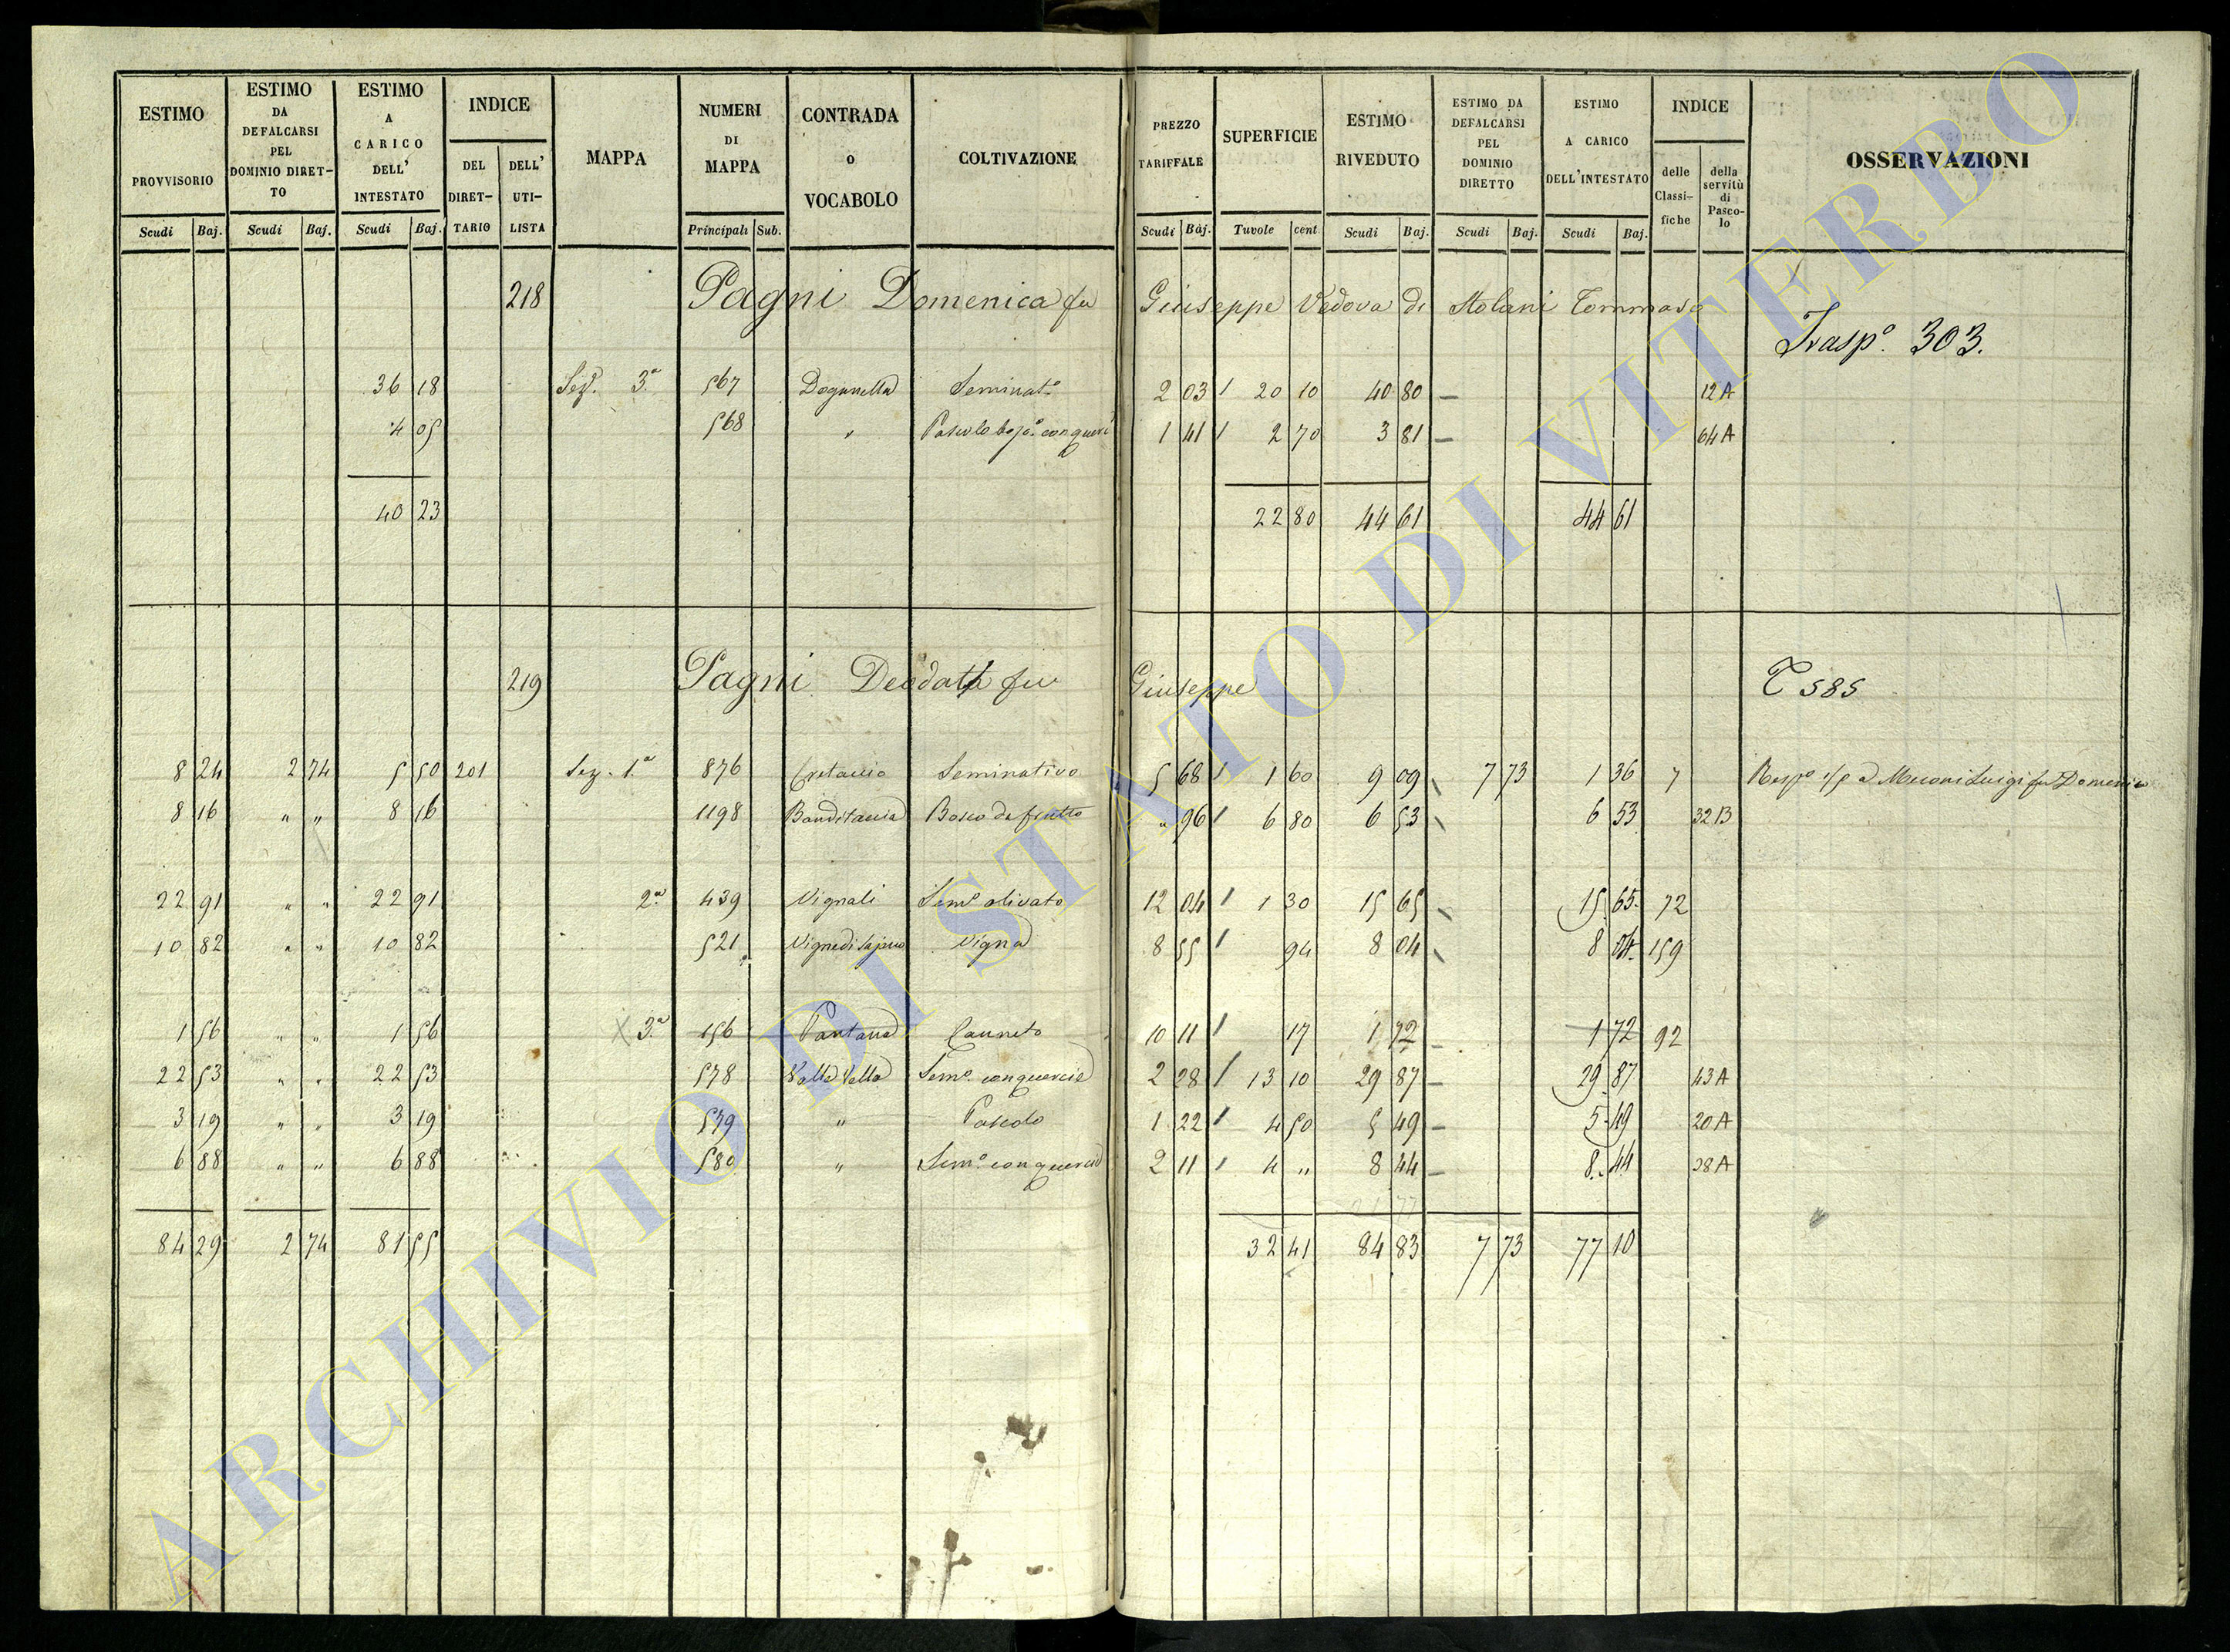 ESTIMO PROVVISORIO Scudi Baj. ESTIMO DA DEFALCARSI PEL DOMINIO DIRETTO Scudi Baj. ESTIMO A CARICO DELL' INTESTATO Scudi Baj. INDICE DEL DIRETTARIO DELL' UTILISTA MAPPA NUMERI DI MAPPA Principali Sub. CONTRADA o VOCABOLO COLTIVAZIONE PREZZO TARIFFALE Scudi Baj. SUPERFICIE Tavole cent. ESTIMO RIVEDUTO Scudi Baj. ESTIMO DA DEFALCARSI PEL DOMINIO DIRETTO Scudi Baj. ESTIMO A CARICO DELL'INTESTATO Scudi Baj. INDICE delle Classifiche della servitù di Pascolo OSSERVAZIONI
218 Pagni Domenica fu Giuseppe Vedova di Tommaso
Trasp.º 303.
36 18 Sez. 3.ª 567 Doganella Seminat.º 2 03 20 10 40 80 – 12 A
4 05 568 " 1 41 2 70 3 81 – 64 A
40 23 22 80 44 61 44 61
219 Pagni Deodata fu Giuseppe T 585
8 24 2 74 5 50 201 Sez. 1.ª 876 Cretaccio Seminativo 5 68 1 60 9 09 7 73 1 36 7 Luigi fu Domenico
8 16 " " 8 16 1198 Banditaccia Bosco da frutto " 96 6 80 6 53 6 53 32 B
22 91 " " 22 91 2.ª 439 Vignali Sem.º olivato 12 04 1 30 15 65 15 65 72
10 82 " " 10 82 521 Vigna 8 55 94 8 04 8 04 159
1 56 " " 1 56 X 3.ª 156 Pantana Canneto 10 11 17 1 72 – 1 72 92
22 53 " " 22 53 578 Sem.º con querciè 2 28 13 10 29 87 – 29 87 43 A
3 19 " " 3 19 579 " Pascolo 1 22 4 50 5 49 – 5 49 20 A
6 88 " " 6 88 580 " Sem.º con querciè 2 11 4 " 8 44 – 8 44 28 A
84 29 2 74 81 55 32 41 84 83 7 73 77 10
ARCHIVIO DI STATO DI VITERBO